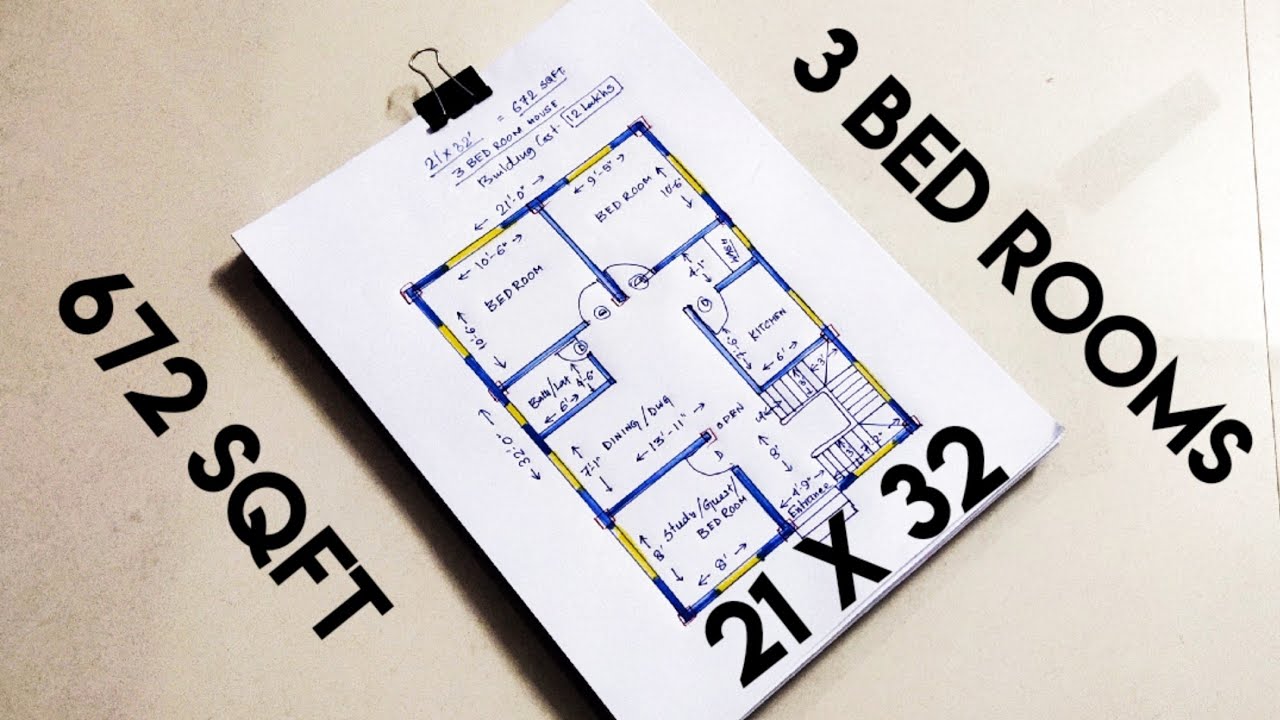 3 BED ROOMS
672 SQFT
21 X 32
21 x 32' = 672 SQFT
3 BED ROOM HOUSE
Building Cost. 12 Lakhs
21'-0"
9'-5"
BED ROOM
10'-6"
10'-6"
BED ROOM
10'-6"
4'-1"
D
D
D
KITCHEN
6'
Bath/Lat
4'-6"
6'
32'-0"
DINING/DWG
13'-11"
7'-1"
OPEN
8'
3'
3'
7'-2"
D
4'-9"
Entrance
Study/Guest/
BED ROOM
8'
8'